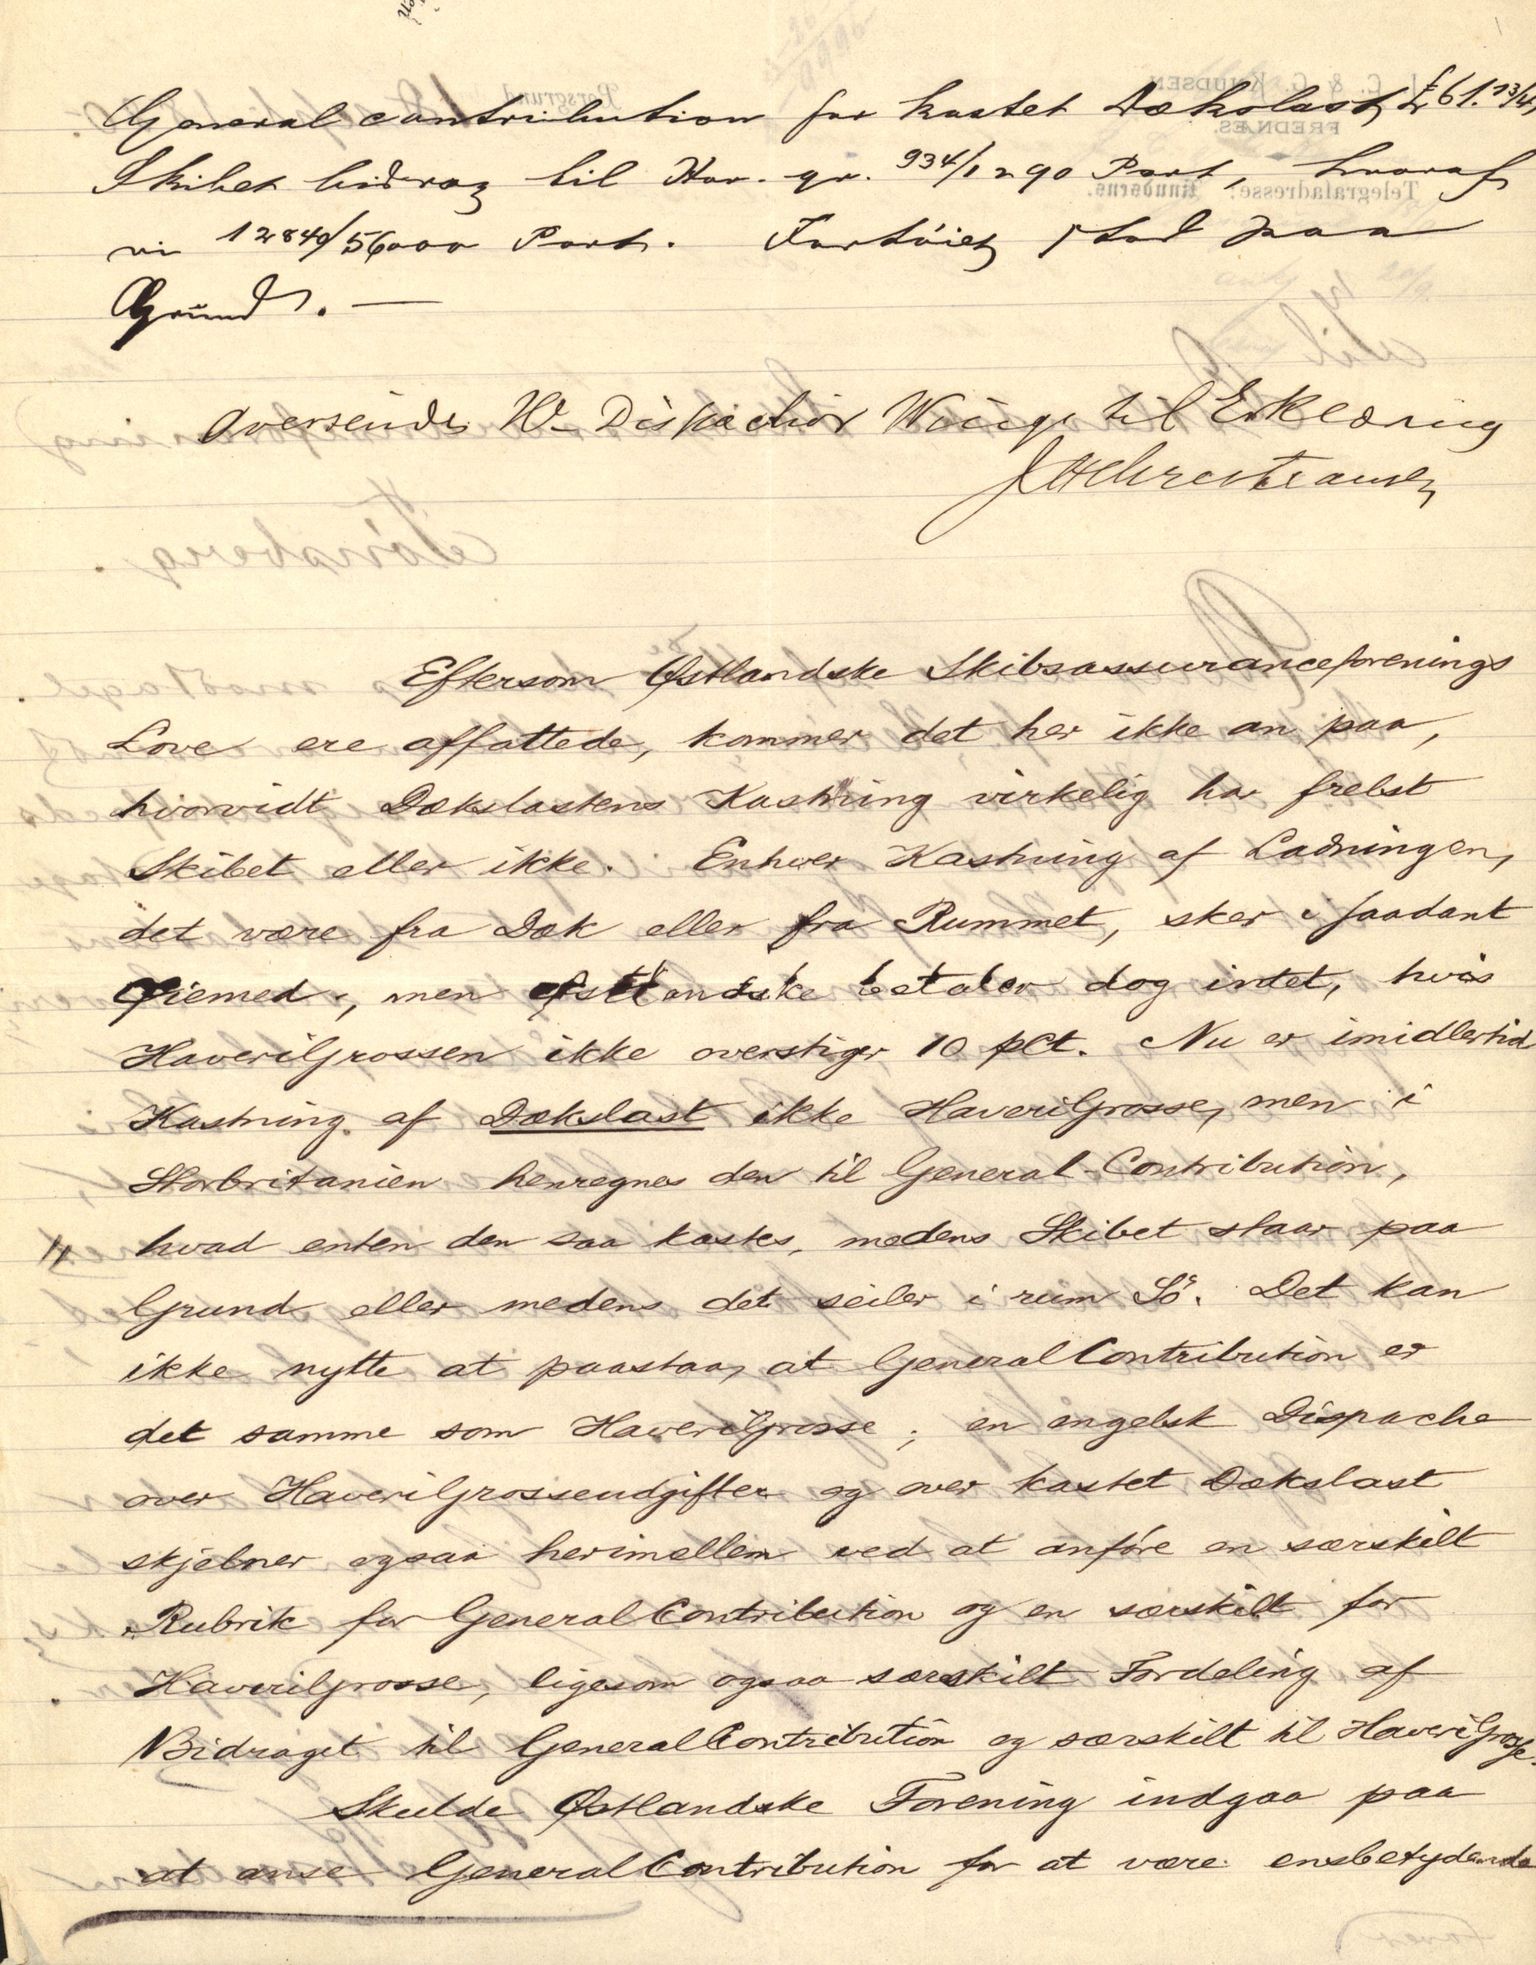 General contribution for kastet Dækslast £ 61.13/4,
Skibets bidrag til Hav. gr. 934/1290 Part, hvoraf
vi 12840/56000 Part. Fartöiet stod paa
Grund. —
Oversendes Hr Dispachör Winge til Erklæring
JHChrestiansen
Eftersom Østlandske Skibsassuranceforenings
Love ere affattede, kommer det her ikke an paa,
hvorvidt Dækslastens Kastning virkelig har frelst
Skibet eller ikke. Enhver Kastning af Ladningen,
det være fra Dæk eller fra Rummet, sker i saadant
Øiemed, men Østlandske betaler dog intet, hvis
HaveriGrossen ikke overstiger 10 pCt. Nu er imidlertid
Kastning af Dækslast ikke HaveriGrosse, men i
Storbritanien henregnes den til General-Contribution,
hvad enten den saa kastes, medens Skibet staar paa
Grund eller medens det seiler i rum Sö. Det kan
ikke nytte at paastaa, at GeneralContribution er
det samme som HaveriGrosse; en engelsk Dispache
over HaveriGrosseudgifter og over kastet Dækslast
skjelner ogsaa herimellem ved at anföre en særskilt
Rubrik for GeneralContribution og en særskilt for
HaveriGrosse, ligesom ogsaa særskilt Fordeling af
Bidraget til GeneralContribution og særskilt til HaveriGrosse.
Skulde Østlandske Forening indgaa paa
at anse GeneralContribution for at være ensbetydende